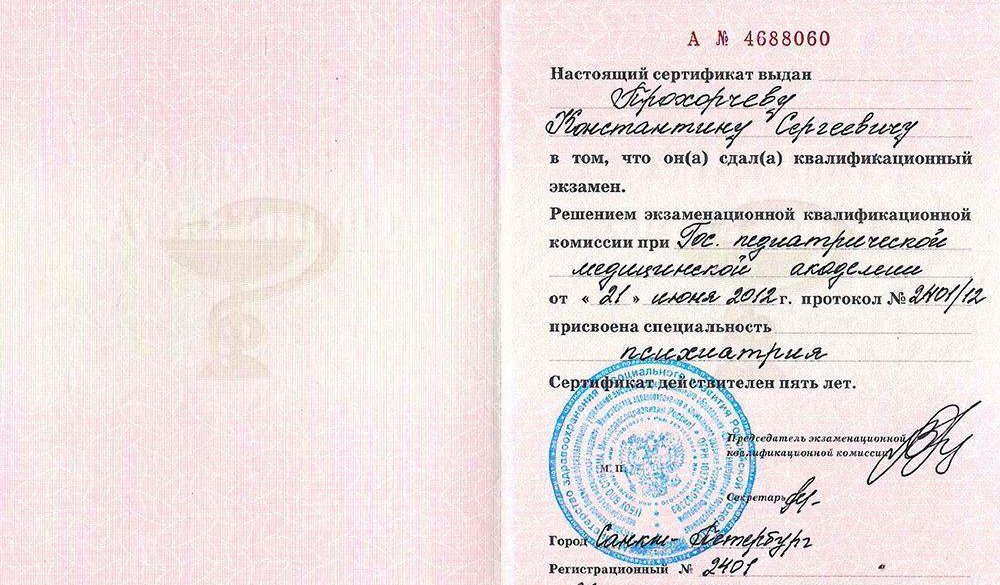 А № 4688060
Настоящий сертификат выдан
Прохорчеву
Константину Сергеевичу
в том, что он(а) сдал(а) квалификационный
экзамен.
Решением экзаменационной квалификационной
комиссии при Гос. педиатрической
медицинской академии
от « 21 » июня 2012 г. протокол № 2401/12
присвоена специальность
психиатрия
Сертификат действителен пять лет.
Председатель экзаменационной
квалификационной комиссии
М. П.
Секретарь
Город Санкт-Петербург
Регистрационный № 2401